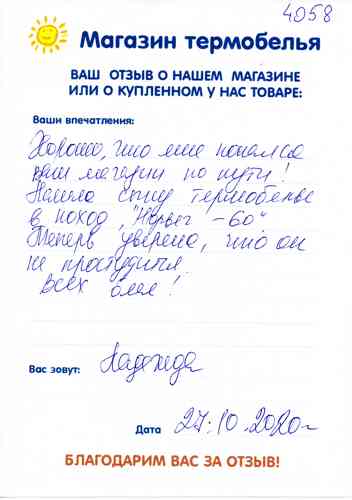 4058
Магазин термобелья
ВАШ ОТЗЫВ О НАШЕМ МАГАЗИНЕ
ИЛИ О КУПЛЕННОМ У НАС ТОВАРЕ:
Ваши впечатления:
Хорошо, что мне попался
ваш магазин по пути!
Нашла сыну термобелье
в поход, "Норвег -60"
Теперь уверена, что он
не простудится.
Всех благ!
Вас зовут: Надежда
Дата 27.10.2020г
БЛАГОДАРИМ ВАС ЗА ОТЗЫВ!